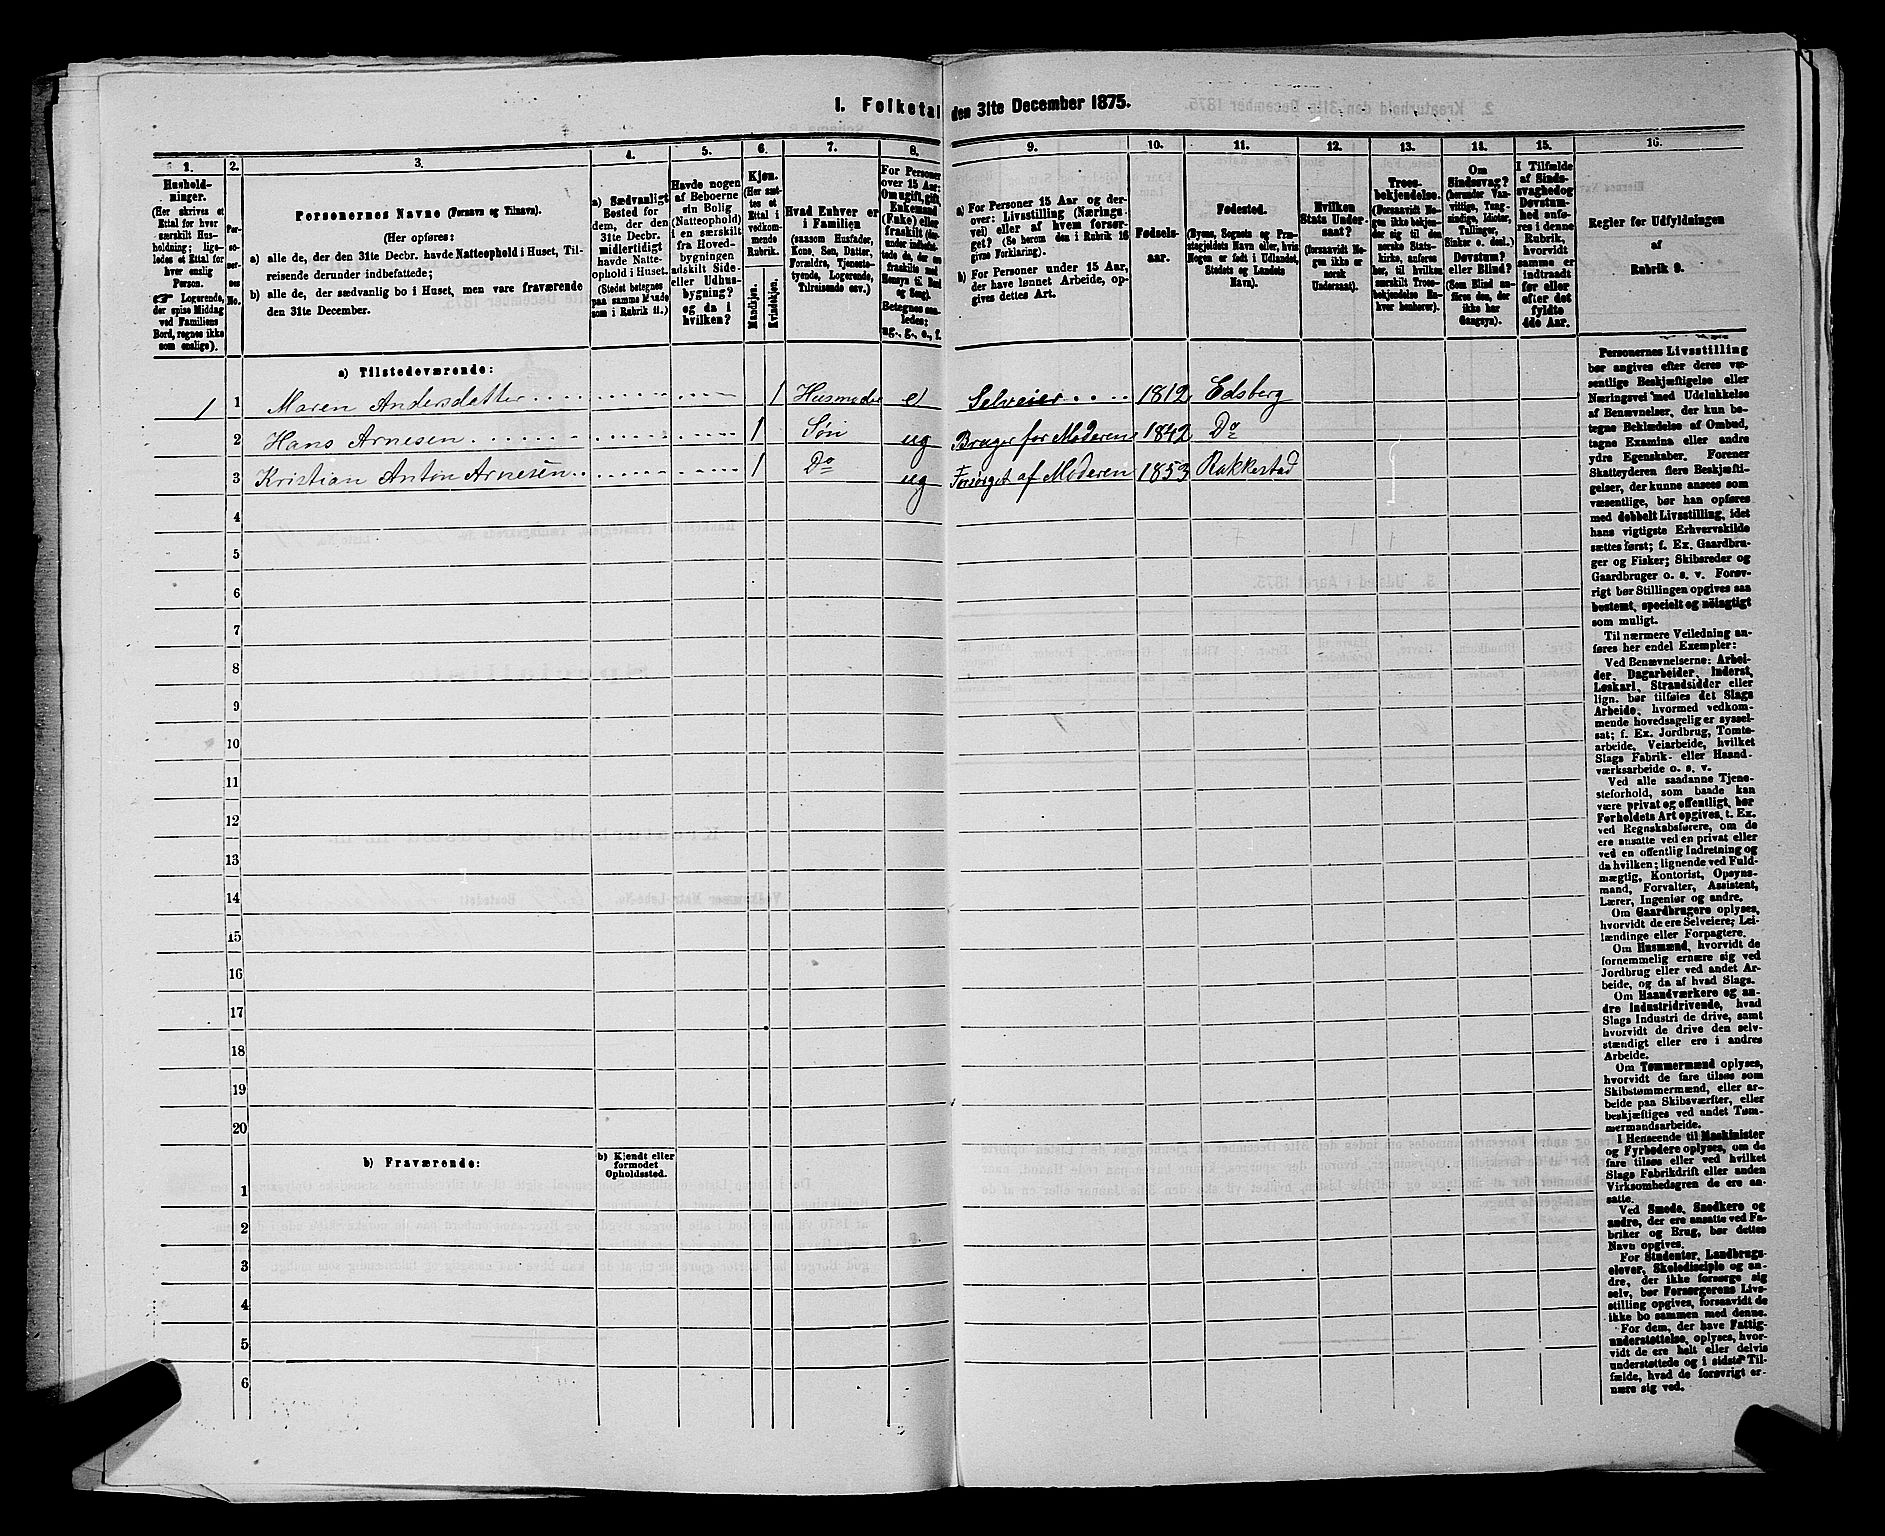 I. Folketal den 31te December 1875.
1. 2. 3. 4. 5. 6. 7. 8. 9. 10. 11. 12. 13. 14. 15. 16.
Hushold-
ninger.
(Her skrives et
Ettal for hver
særskilt Hus-
holdning; lige-
ledes et Ettal for
hver enslig
Person.
☞ Logerende,
der spise Middag
ved Familiens
Bord, regnes ikke
som enslige).
Per-
so-
ner-
nes
No.
Personernes Navne (Fornavn og Tilnavn).
(Her opføres:
a) alle de, der den 31te Decbr. havde Natteophold i Huset, Til-
reisende derunder indbefattede;
b) alle de, der sædvanlig bo i Huset, men vare fraværende
den 31te December.
a) Sædvanligt
Bosted for
dem, der den
31te Decbr.
midlertidigt
havde Natte-
ophold i Huset.
(Stedet betegnes
paa samme Maade
som i Rubrik 11.)
Havde nogen
af Beboerne
sin Bolig
(Natteophold)
i en særskilt
fra Hoved-
bygningen
adskilt Side-
eller Udhus-
bygning?
og da i
hvilken?
Kjøn.
(Her sæt-
tes et
Ettal i
vedkom-
mende
Rubrik.
Mandkjøn.
Kvindekjøn.
Hvad Enhver er
i Familien
(saasom Husfader,
Kone, Søn, Datter,
Forældre, Tjeneste-
tyende, Logerende,
Tilreisende osv.)
For Personer
over 15 Aar:
Om ugift, gift,
Enkemand
(Enke) eller
fraskilt (der-
under indbefat-
tede de, der ere
fraskilte med
Hensyn til Bord
og Seng).
Betegnes saa-
ledes:
ug., g., e., f.
a) For Personer 15 Aar og der-
over: Livsstilling (Nærings-
vei) eller af hvem forsør-
get? (Se herom den i Rubrik 16
givne Forklaring).
b) For Personer under 15 Aar,
der have lønnet Arbeide, op-
gives dettes Art.
Fødsels-
aar.
Fødested.
(Byens, Sognets og Præ-
stegjeldets Navn eller, hvis
Nogen er født i Udlandet,
Stedets og Landets
Navn).
Hvilken
Stats Under-
saat?
(forsaavidt No-
gen ikke er
norsk
Undersaat).
Troes-
bekjendelse.
(Forsaavidt No-
gen ikke bekjen-
der sig til den
norske Stats-
kirke, anføres
her, til hvilken
særskilt Troes-
bekjendelse En-
hver henhører).
Om
Sindssvag?
(herunder Van-
vittige, Tung-
sindige, Idioter,
Tullinger,
Sinker o. desl.)
Døvstum?
eller Blind?
(Som Blind an-
føres den, der
ikke har
Gangsyn).
I Tilfælde
af Sinds-
svaghed og
Døvstum-
hed anfø-
res i denne
Rubrik,
hvorvidt
samme er
indtraadt
før eller
efter det
fyldte
4de Aar.
Regler for Udfyldningen
af
Rubrik 9.
a) Tilstedeværende:
1 1 Maren Andersdatter 1 Husmoder e Selveier 1812 Edsberg
2 Hans Arnesen 1 Søn ug Bruger for Moderen 1842 Do
3 Kristian Anton Arnesen 1 Do ug Forsørget af Moderen 1853 Rakkestad
4
5
6
7
8
9
10
11
12
13
14
15
16
17
18
19
20
b) Fraværende:
b) Kjendt eller
formodet
Opholdssted.
1
2
3
4
5
6
Personernes Livsstilling
bør angives efter deres væ-
sentlige Beskjæftigelse eller
Næringsvei med Udelukkelse
af Benævnelser, der kun be-
tegne Beklædelse af Ombud,
tagne Examina eller andre
ydre Egenskaber. Forener
Skatteyderen flere Beskjæfti-
gelser, der kunne ansees som
væsentlige, bør han opføres
med dobbelt Livsstilling, idet
hans vigtigste Erhvervskilde
sættes først; f. Ex. Gaardbru-
ger og Fisker; Skibsreder og
Gaardbruger o. s. v. Forøv-
rigt bør Stillingen opgives saa
bestemt, specielt og nøiagtigt
som muligt.
Til nærmere Veiledning an-
føres her endel Exempler:
Ved Benævnelserne: Arbei-
der, Dagarbeider, Inderst,
Løskarl, Strandsidder eller
lign. bør tilføies det Slags
Arbeide, hvormed vedkom-
mende hovedsagelig er syssel-
sat; f. Ex. Jordbrug, Tomte-
arbeide, Veiarbeide, hvilket
Slags Fabrik- eller Haand-
værksarbeide o. s. v.
Ved alle saadanne Tjene-
steforhold, som baade kan
være privat og offentligt, bør
Forholdets Art opgives, t. Ex.
ved Regnskabsførere, om de
ere ansatte ved en privat eller
ved en offentlig Indretning og
da hvilken; lignende ved Fuld-
mægtig, Kontorist, Opsyns-
mand, Forvalter, Assistent,
Lærer, Ingeniør og andre.
Om Gaardbrugere oplyses,
hvorvidt de ere Selveiere, Lei-
lændinge eller Forpagtere.
Om Husmænd, hvorvidt de
fornemmelig ernære sig ved
Jordbrug eller ved andet Ar-
beide, og da af hvad Slags.
Om Haandværkere og an-
dre Industridrivende, hvad
Slags Industri de drive, samt
hvorvidt de drive den selv-
stændigt eller ere i andres
Arbeide.
Om Tømmermænd oplyses,
hvorvidt de fare tilsøs som
Skibstømmermænd, eller ar-
beide paa Skibsværfter, eller
beskjæftiges ved andet Tøm-
mermandsarbeide.
I Henseende til Maskinister
og Fyrbødere oplyses, om de
fare tilsøs eller ved hvilket
Slags Fabrikdrift eller anden
Virksomhedsgren de ere an-
satte.
Ved Smede, Snedkere og
andre, der ere ansatte ved Fa-
briker og Brug, bør dettes
Navn opgives.
For Studenter, Landbrugs-
elever, Skoledisciple og an-
dre, der ikke forsørge sig
selv, bør Forsørgerens Livs-
stilling opgives, forsaavidt de
ikke bo sammen med denne.
For dem, der have Fattig-
understøttelse, oplyses, hvor-
vidt de ere helt eller delvis
understøttede og i sidste Til-
fælde, hvad de forøvrigt er-
nære sig ved.